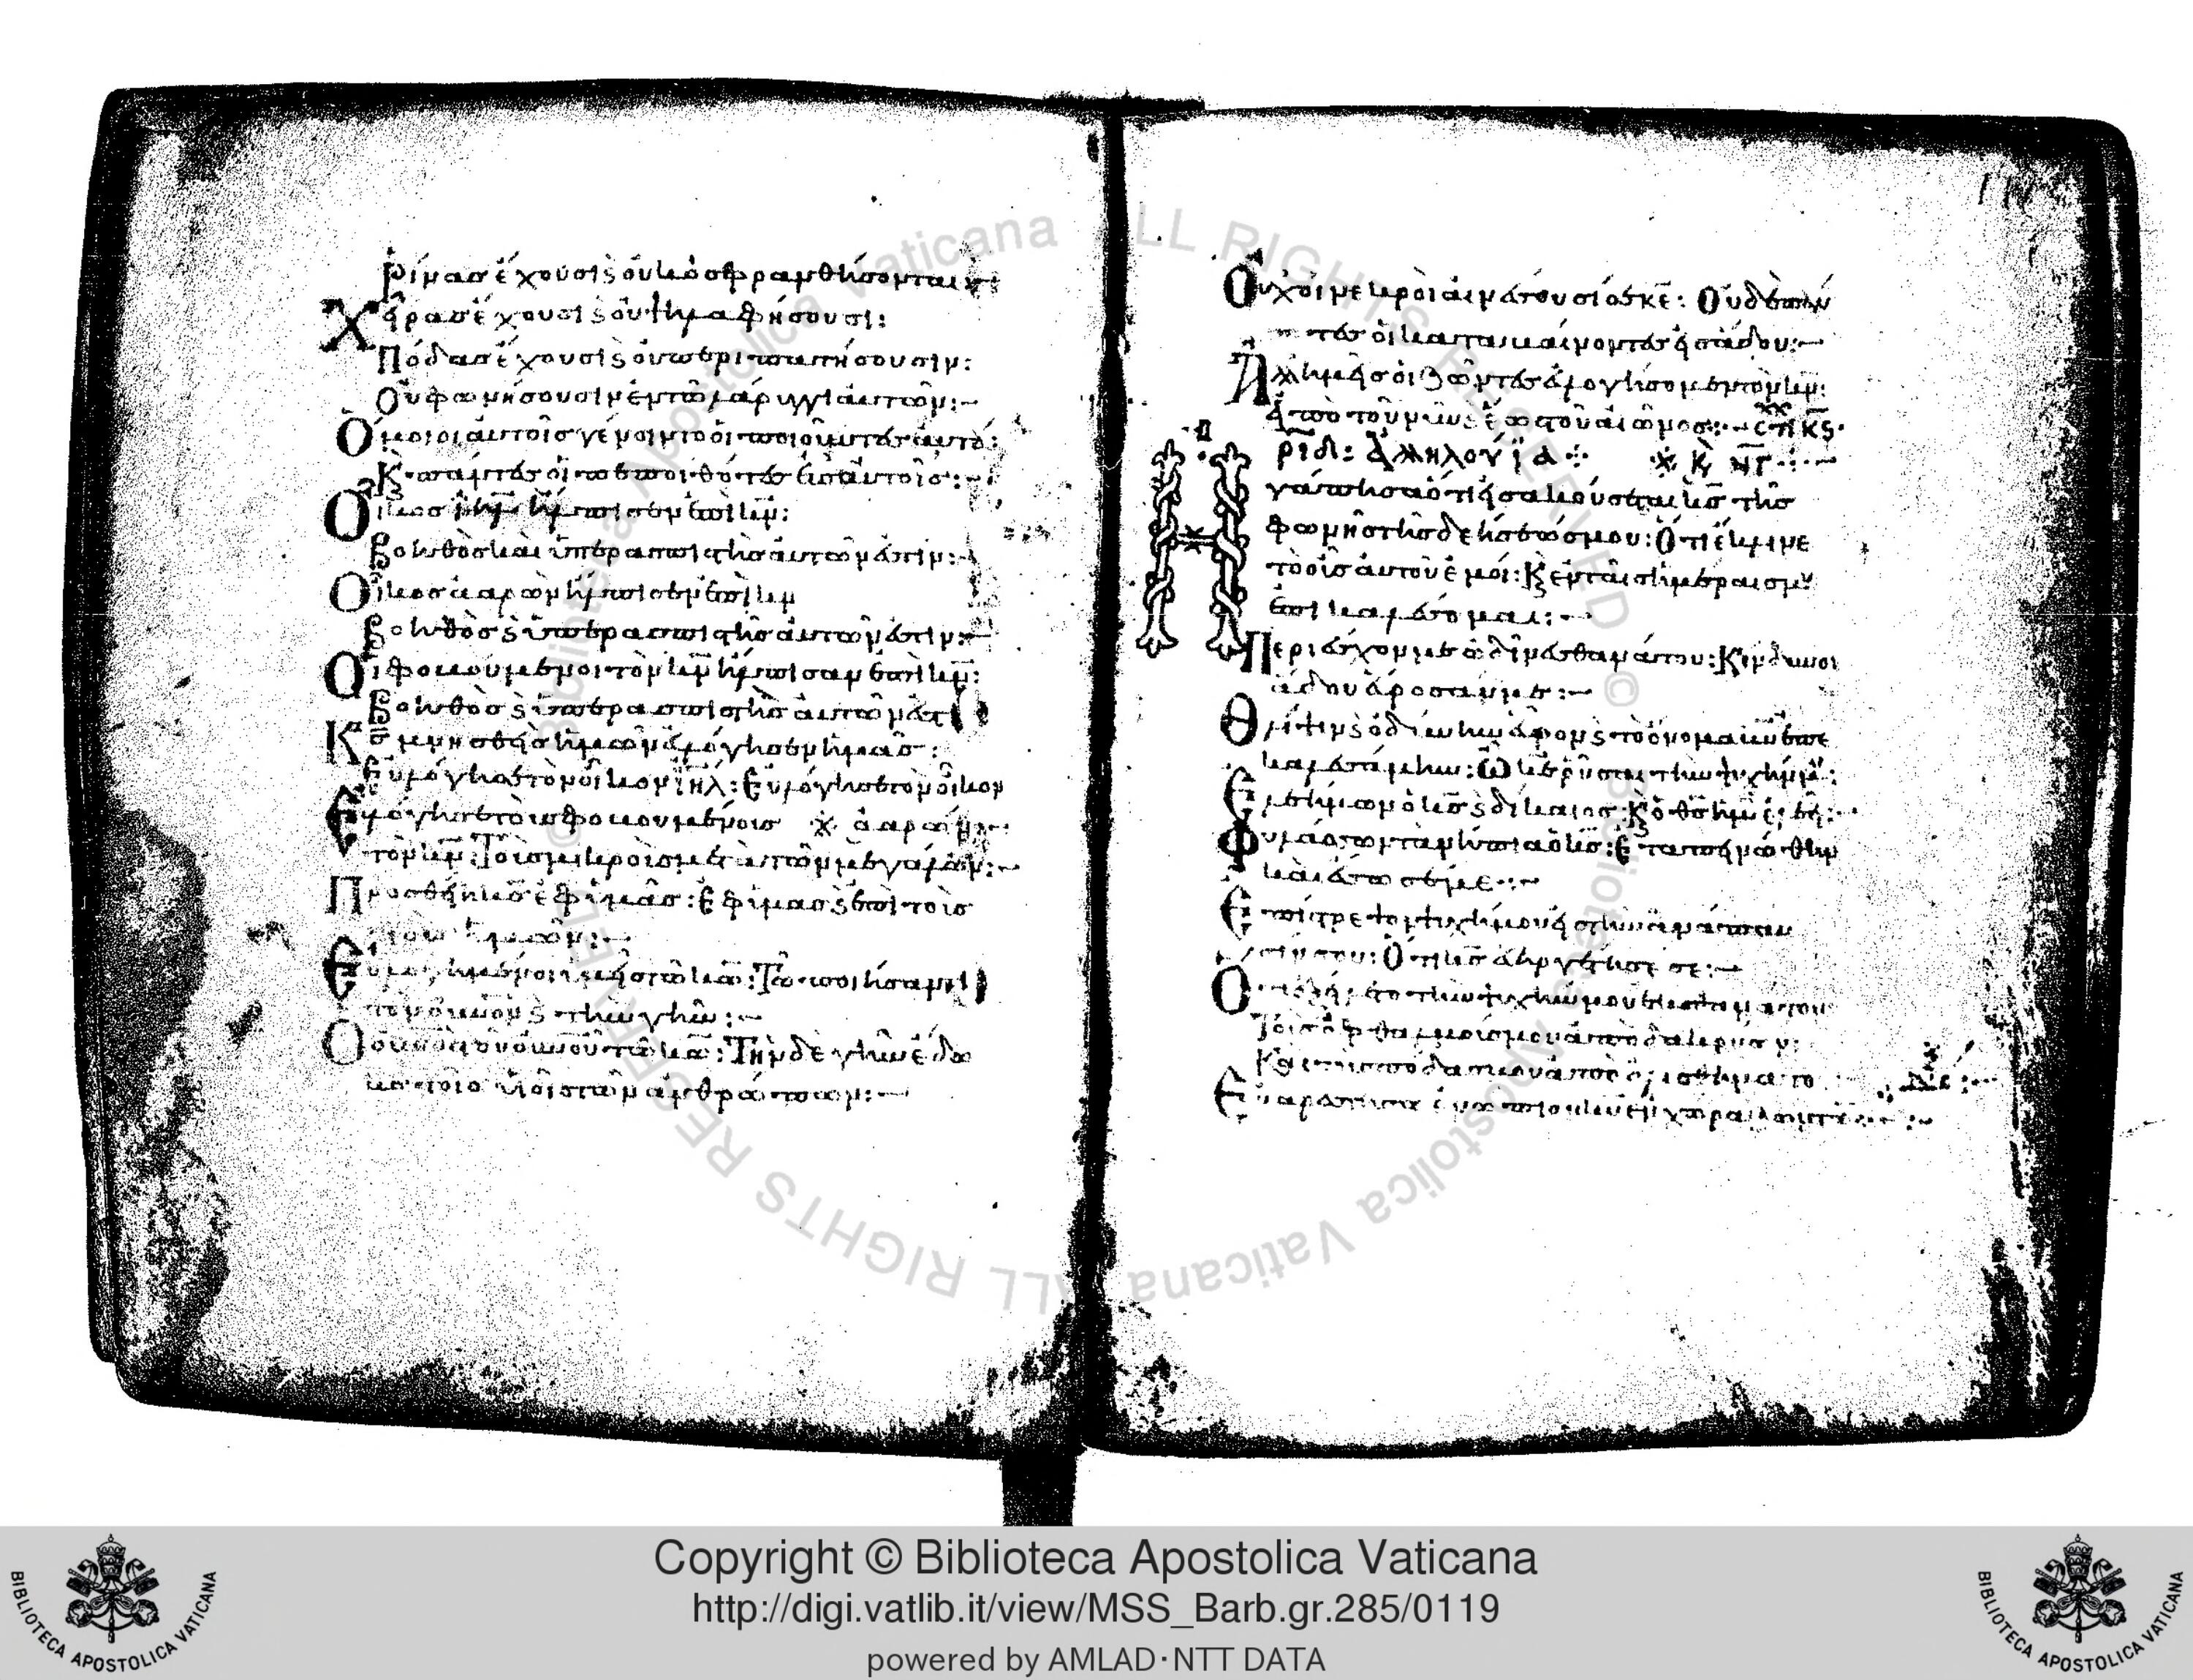 ῥίνας ἔχουσι ϛ οὐκ ὀσφρανθήσονται:
Χεῖρας ἔχουσι ϛ οὐ ψηλαφήσουσι:
Πόδας ἔχουσι ϛ οὐ περιπατήσουσιν:
Οὐ φωνήσουσιν ἐν τῷ λάρυγγι αὐτῶν:~
Ὅμοιοι αὐτοῖς γένοιντο οἱ ποιοῦντες αὐτά:
Κ πάντες οἱ πεποιθότες ἐπ αὐτοῖς:~
Οἶκος ἰηλ ἤλπισεν ἐπὶ κν:
βοηθὸς καὶ ὑπερασπιστὴς αὐτῶν ἐστιν:~
Οἶκος ἀαρὼν ἤλπισεν ἐπὶ κν
βοηθὸς ϛ ὑπερασπιστὴς αὐτῶν ἐστιν:~
Οἱ φοβούμενοι τὸν κν ἤλπισαν ἐπὶ κν:
βοηθὸς ϛ ὑπερασπιστὴς αὐτῶν ἐστ
Κς μνησθεὶς ἡμῶν εὐλόγησεν ἡμᾶς:
Εὐλόγησε τὸν οἶκον ἰηλ: Εὐλόγησε τὸν οἶκον
Εὐλόγησε τοὺς φοβουμένους ἀαρών:~
τὸν κν: Τοὺς μικροὺς μετὰ τῶν μεγάλων:~
Προσθείη κς ἐφ ἡμᾶς: Ἐφ ἡμᾶς ϛ ἐπὶ τοὺς
ἡμῶν:~
Εὐλογημένοι ἡμεῖς τῷ κω: Τῷ ποιήσαντι
τὸν οὐνον ϛ τὴν γῆν:~
Ὁ οὐνος τοῦ οὐνοῦ τῷ κω: Τὴν δὲ γῆν ἔδω
κε τοῖς υἱοῖς τῶν ἀνθρώπων:~
Οὐχ οἱ νεκροὶ αἰνέσουσί σε κε: Οὐδὲ πάν
τες οἱ καταβαίνοντες εἰς ἅδου:~
Ἀλλ ἡμεῖς οἱ ζῶντες εὐλογήσομεν τὸν κν:
Ἀπὸ τοῦ νῦν ϛ ἕως τοῦ αἰῶνος:~ στι κϛ
ριδ: Ἀλληλούϊα
γάπησα ὅτι εἰσακούσεται κς τῆς
φωνῆς τῆς δεήσεώς μου: Ὅτι ἔκλινε
τὸ οὖς αὐτοῦ ἐμοί: Κ ἐν ταῖς ἡμέραις μου
ἐπικαλέσομαι:~
Περιέσχον με ὠδῖνες θανάτου: Κίνδυνοι
ἅδου εὕροσάν με:~
Θλίψιν ϛ ὀδύνην εὗρον ϛ τὸ ὄνομα κυ ἐπε
καλεσάμην: Ὦ κε ῥῦσαι τὴν ψυχήν μου:
Ἐλεήμων ὁ κς ϛ δίκαιος: Κ ὁ θς ἡμῶν ἐλεεῖ:~
Φυλάσσων τὰ νήπια ὁ κς: Ἐταπεινώθην
καὶ ἔσωσέ με:~
Ἐπίστρεψον ψυχή μου εἰς τὴν ἀνάπαυ
σίν σου: Ὅτι κς εὐηργέτησέ σε:~
Ὅτι ἐξείλετο τὴν ψυχήν μου ἐκ θανάτου
Τοὺς ὀφθαλμούς μου ἀπὸ δακρύων:
Καὶ τοὺς πόδας μου ἀπὸ ὀλισθήματο
Εὐαρεστήσω ἐνώπιον κυ ἐν χώρα ζώντων:~
Copyright © Biblioteca Apostolica Vaticana
http://digi.vatlib.it/view/MSS_Barb.gr.285/0119
powered by AMLAD·NTT DATA
BIBLIOTECA APOSTOLICA VATICANA
BIBLIOTECA APOSTOLICA VATICANA